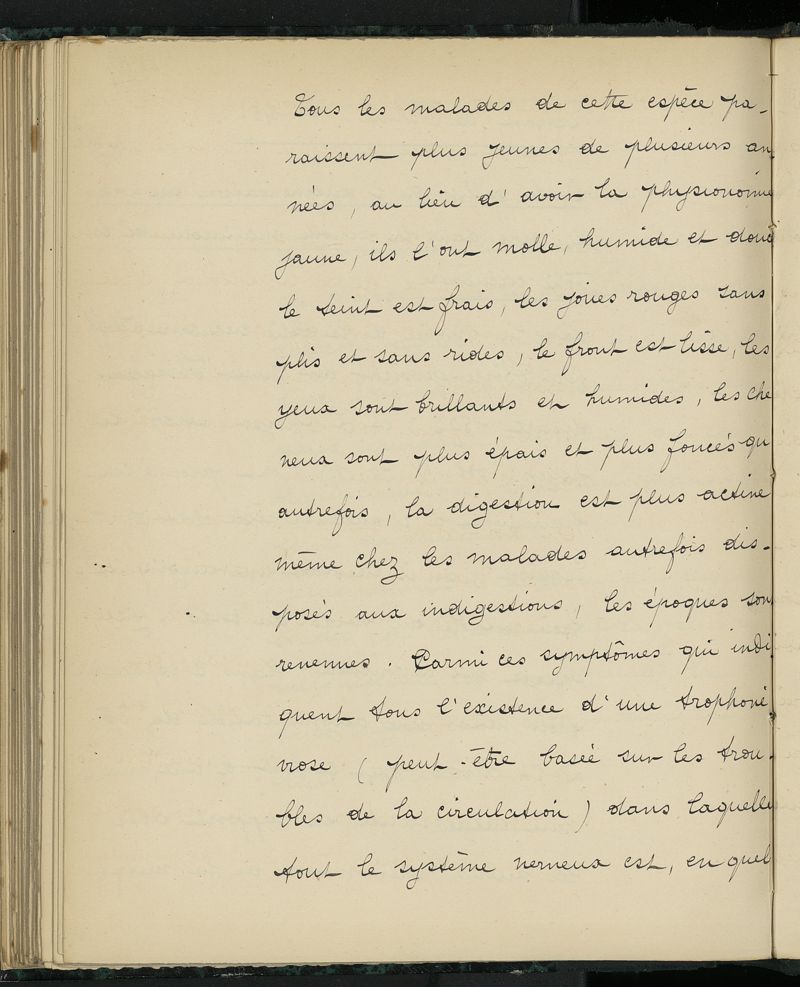 Tous les malades de cette espèce pa-
raissent plus jeunes de plusieurs an-
nées, au lieu d'avoir la physionomie
jaune, ils l'ont molle, humide et douce
le teint est frais, les joues rouges sans
plis et sans rides, le front est lisse, les
yeux sont brillants et humides, les che
veux sont plus épais et plus foncés qu
autrefois, la digestion est plus active
même chez les malades autrefois dis-
posés aux indigestions, les époques sont
revenues. Parmi ces symptômes qui indi-
quent tous l'existence d'une trophoné-
vrose (peut-être basée sur les trou-
bles de la circulation) dans laquelle
tout le système nerveux est, en quel